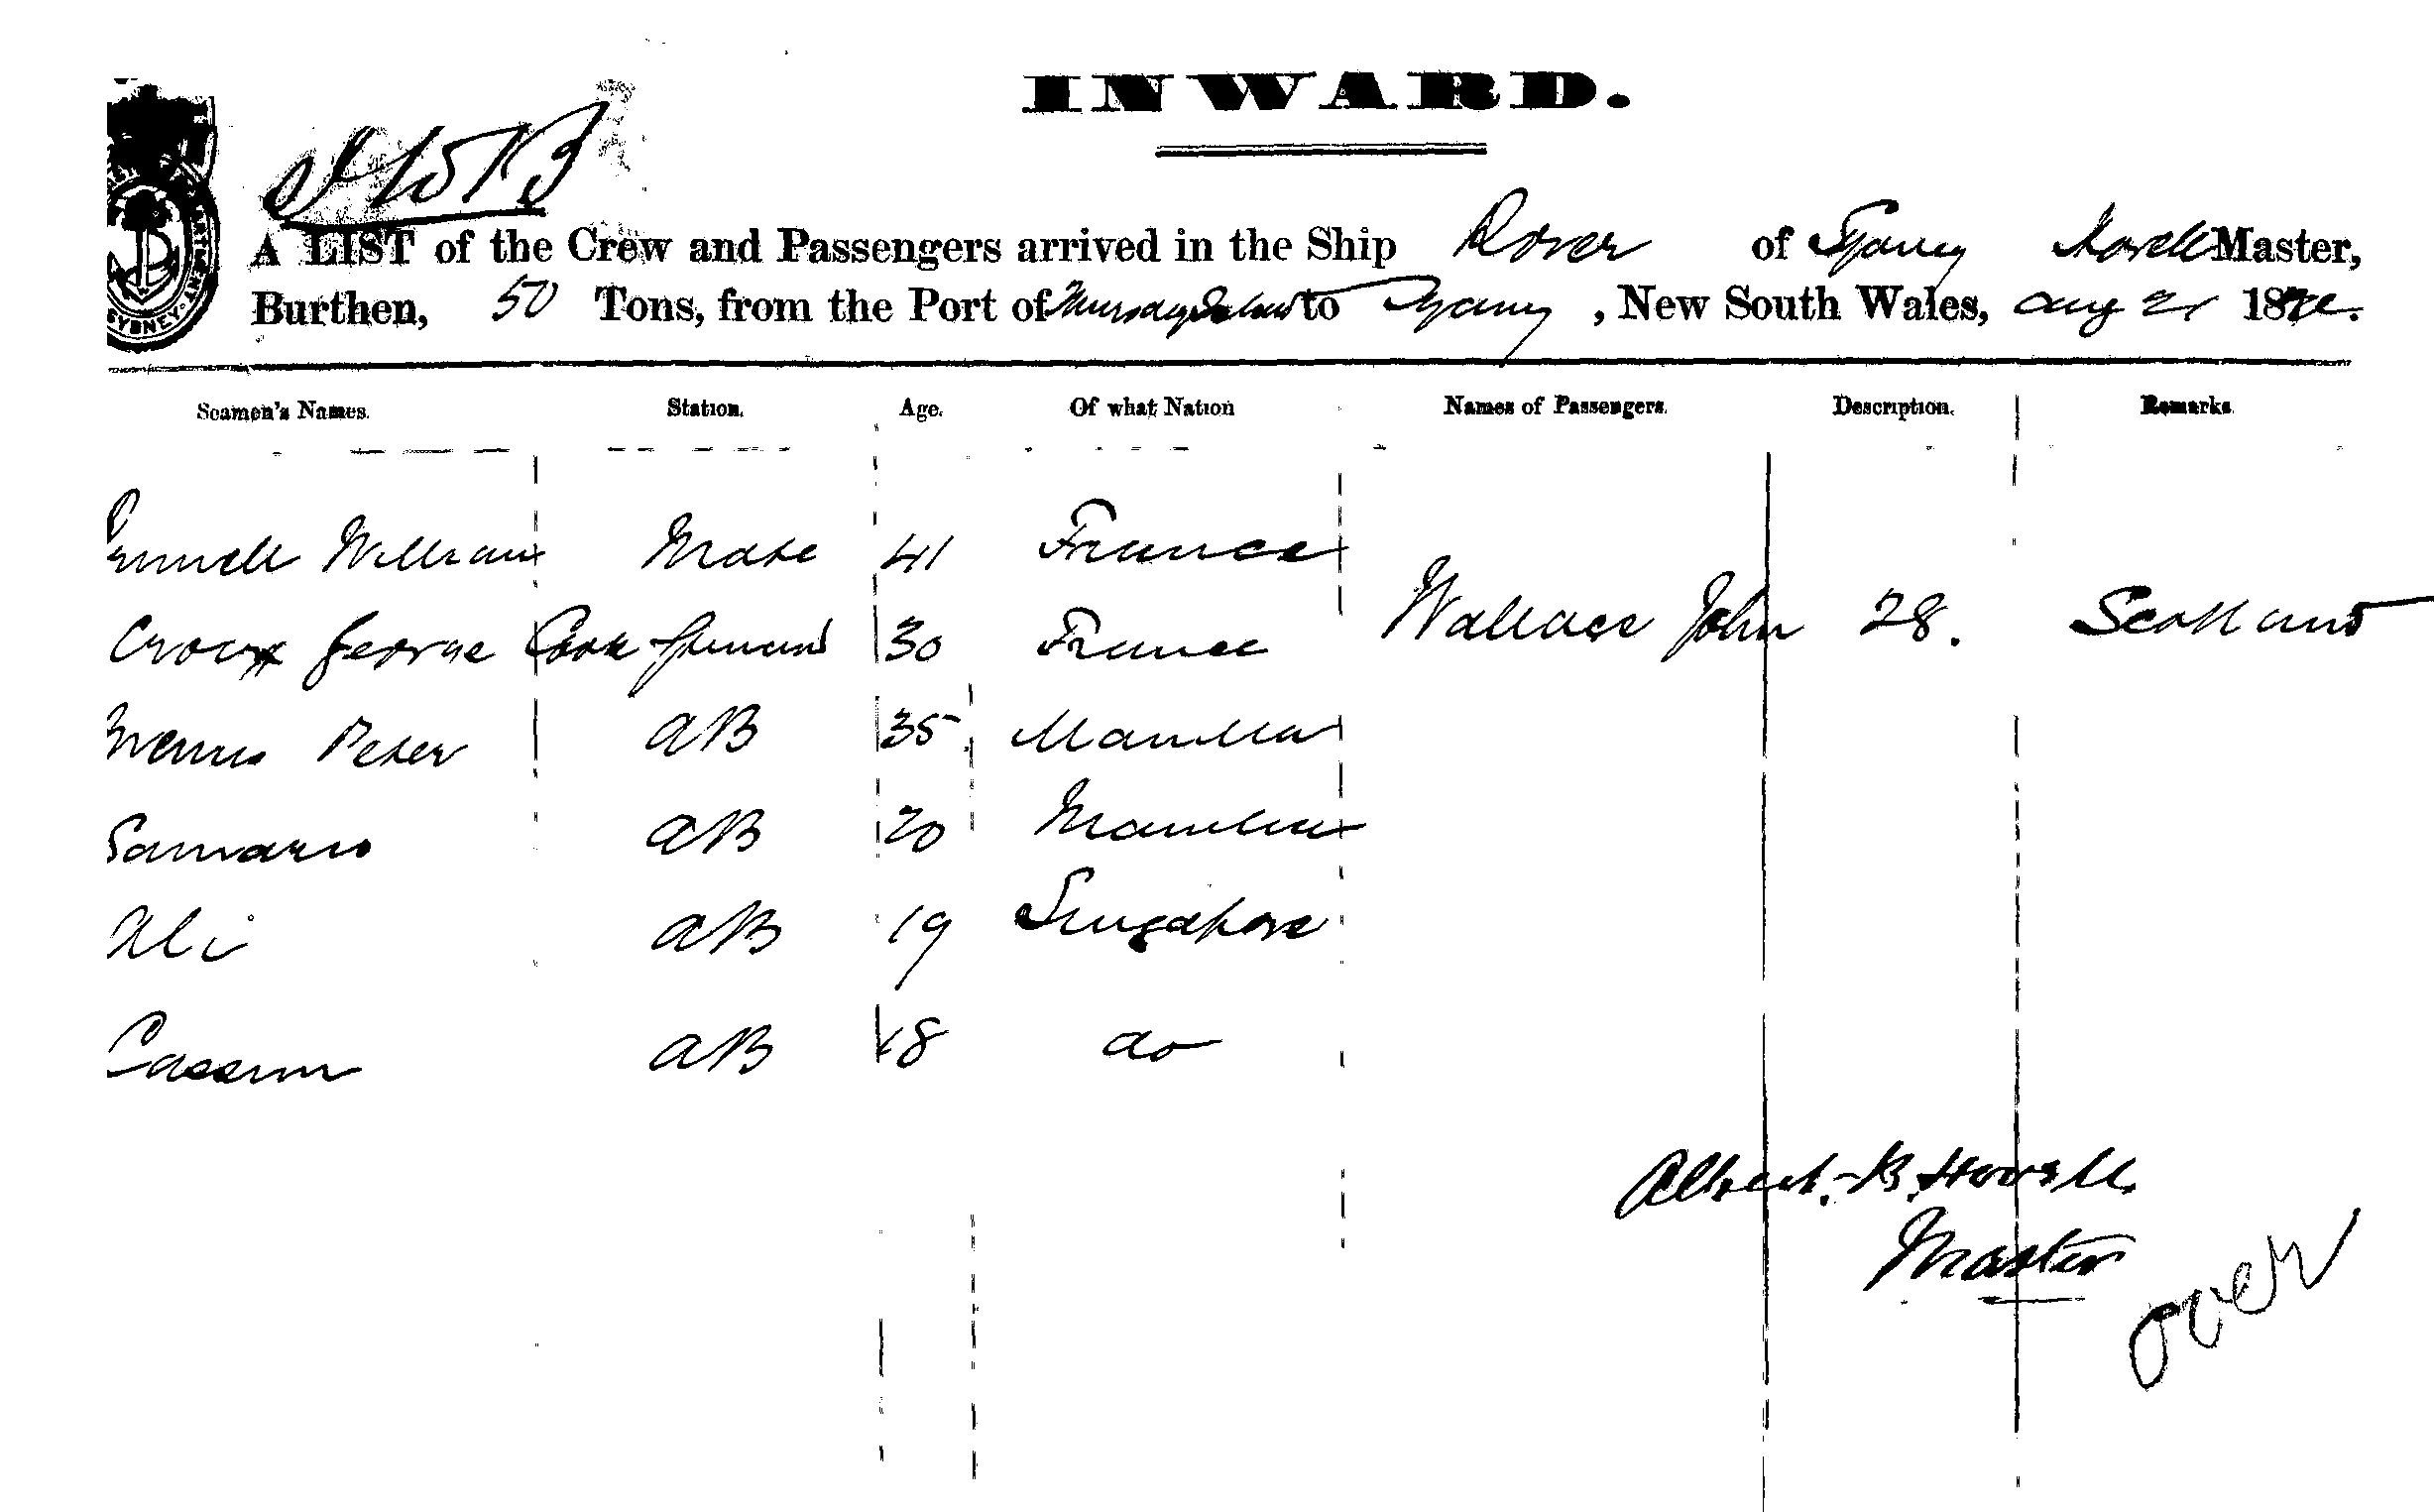 INWARD.
A LIST of the Crew and Passengers arrived in the Ship Rover of Sydney Master,
Burthen, 50 Tons, from the Port of Thursday Island to Sydney, New South Wales, Aug 21 18
SYDNEY
Seamen's Names. Station. Age. Of what Nation Names of Passengers. Description. Remarks
William Mate 41 France
Croux George Cook 30 France Wallace John 28. Scotland
Peter AB 35 Manilla
AB 20 Manilla
Ali AB 19 Singapore
Cassim AB 18 do
Albert. B. Hovell.
Master
over